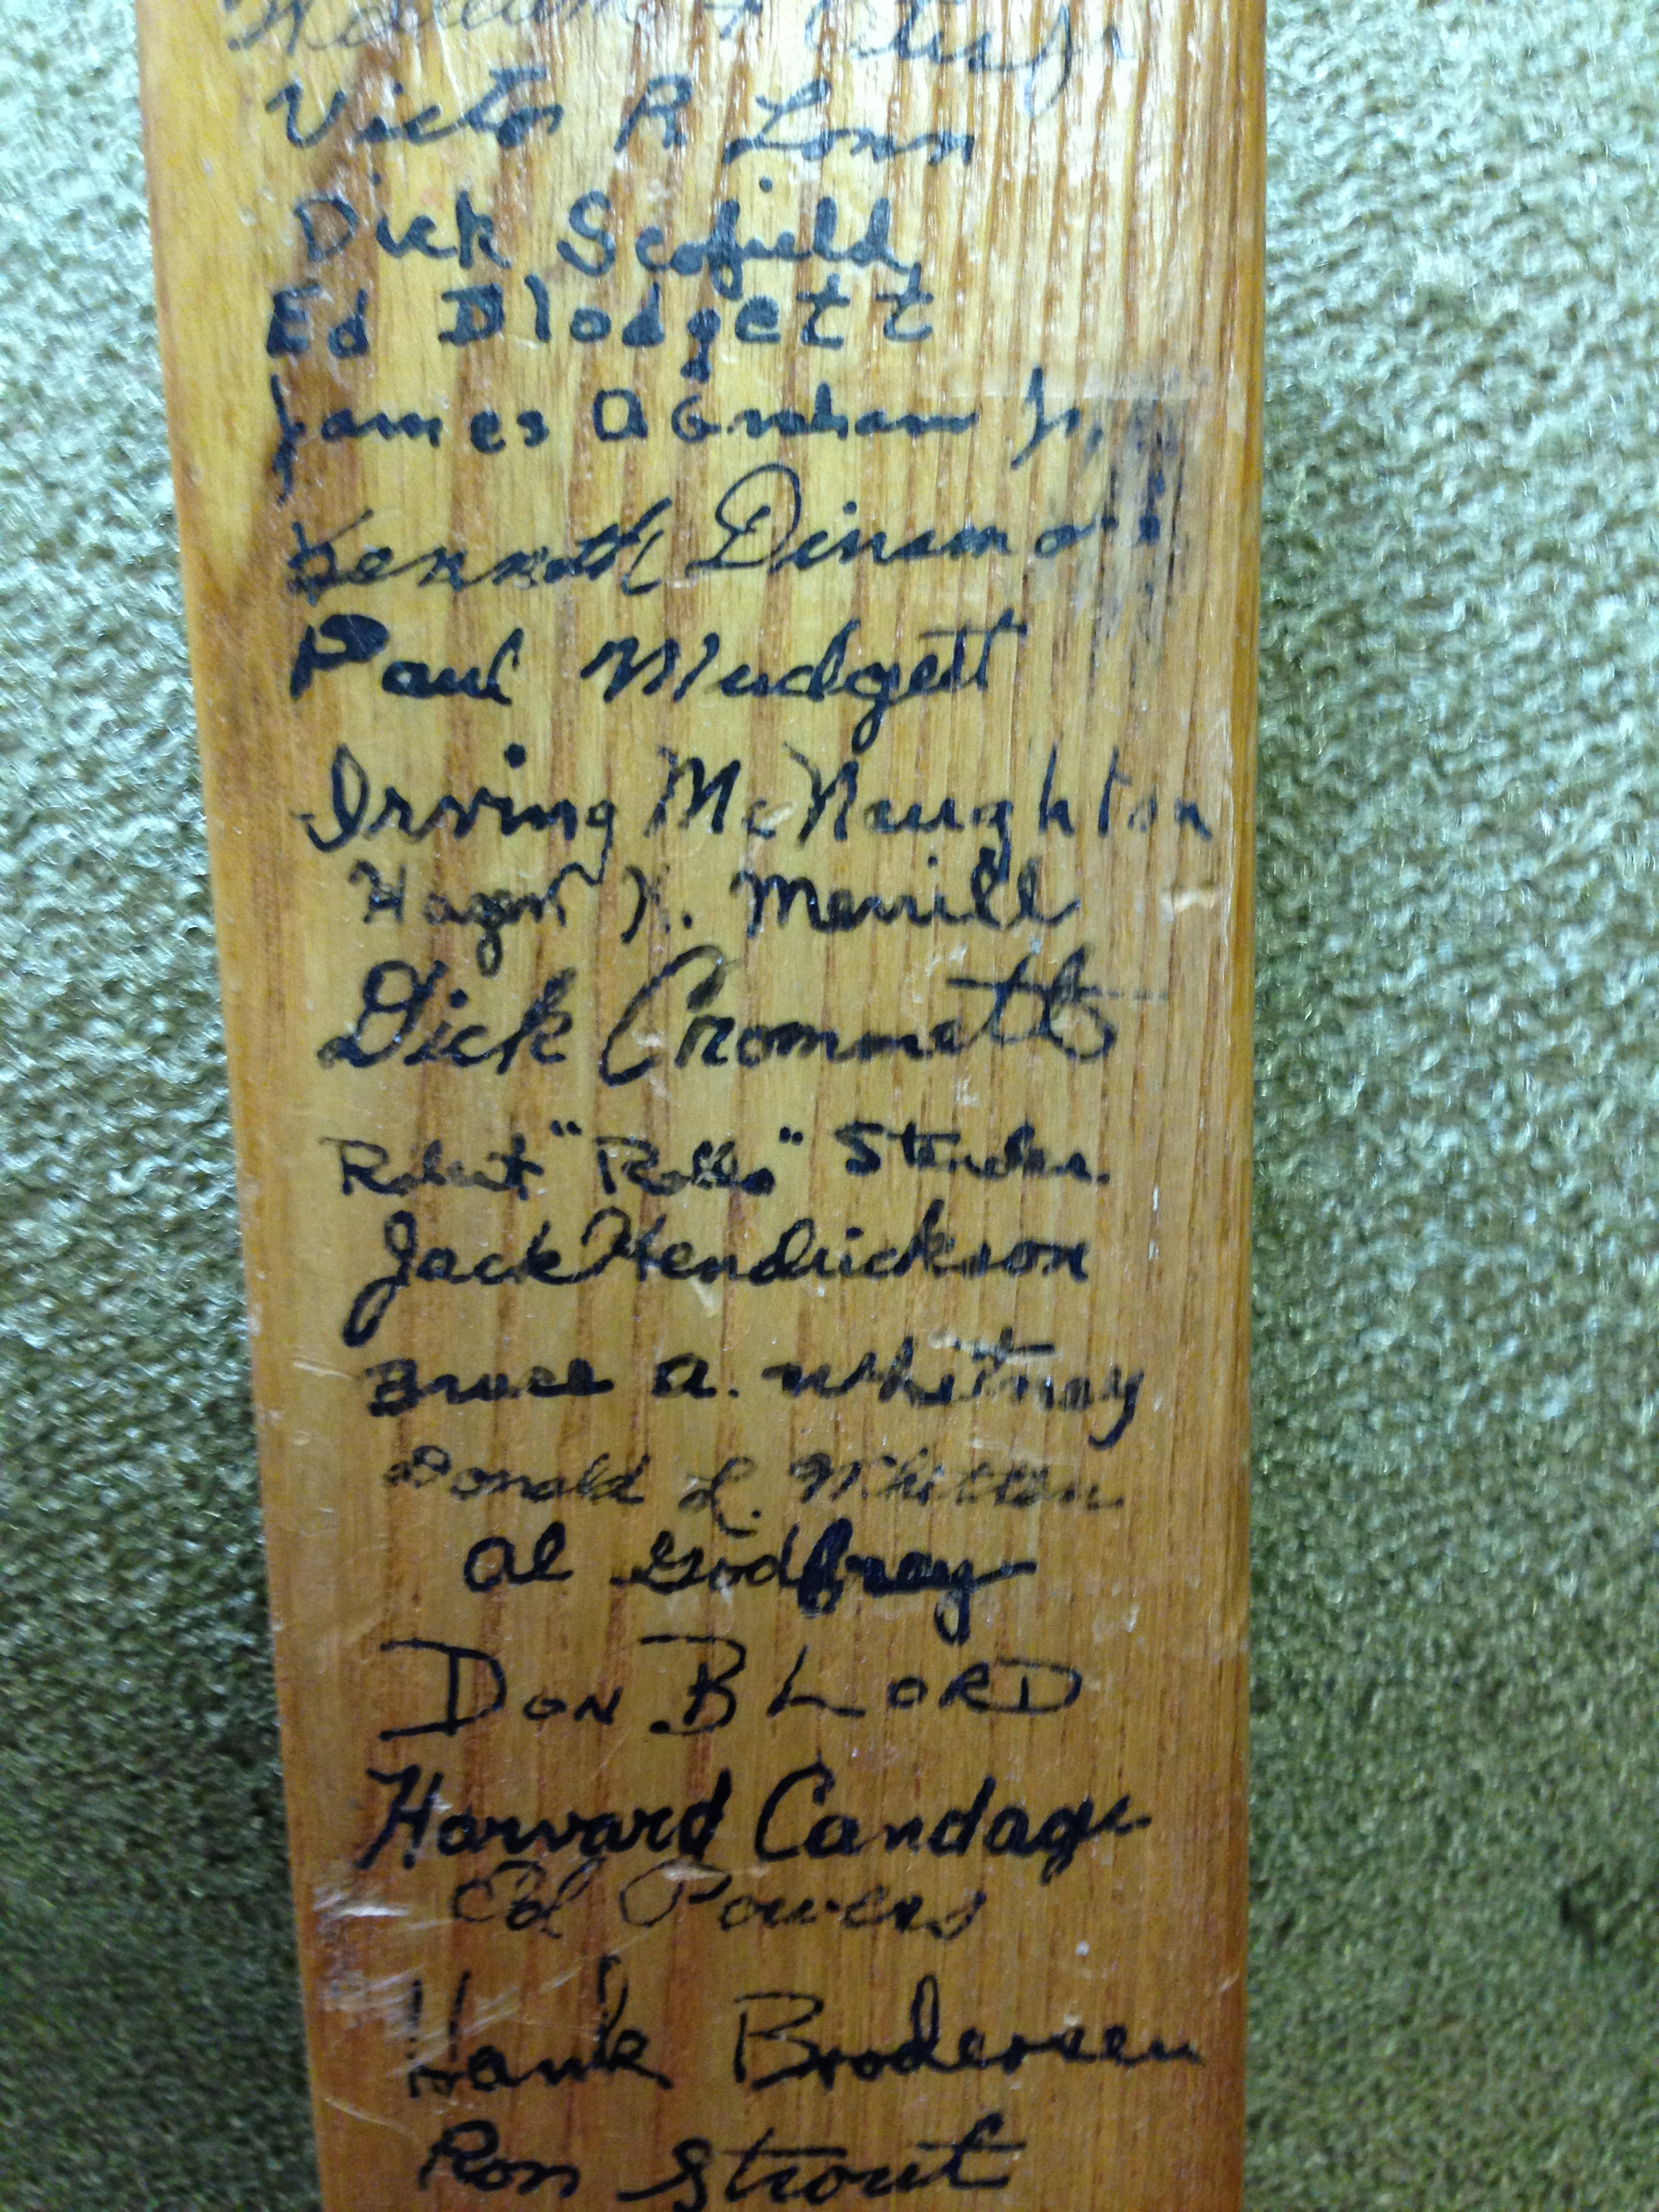 Victor R Lonn
Dick Scofield
Ed Blodgett
James A Graham Jr.
Kenneth Dinsmore
Paul Mudgett
Irving McNaughton
Hazen H. Merrill
Dick Crommett
Robert "Rollo"
Jack Hendrickson
Bruce A. Whitney
Donald L. Whitten
Al Godfrey
DON B LORD
Harvard Candage
Ed Powers
Hank Brodersen
Ron Strout